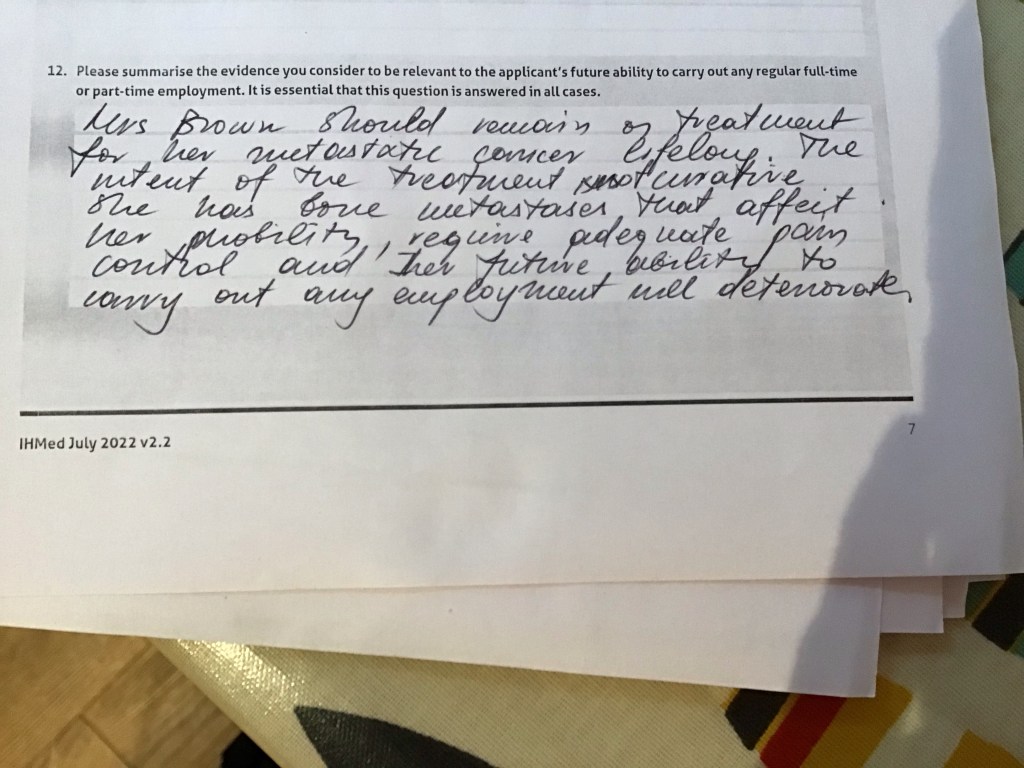 12. Please summarise the evidence you consider to be relevant to the applicant's future ability to carry out any regular full-time
or part-time employment. It is essential that this question is answered in all cases.
Mrs Brown should remain on treatment
for her metastatic cancer lifelong. The
intent of the treatment is not curative
She has bone metastases that affect
her mobility, require adequate pain
control and her future ability to
carry out any employment will deteriorate,
IHMed July 2022 v2.2
7